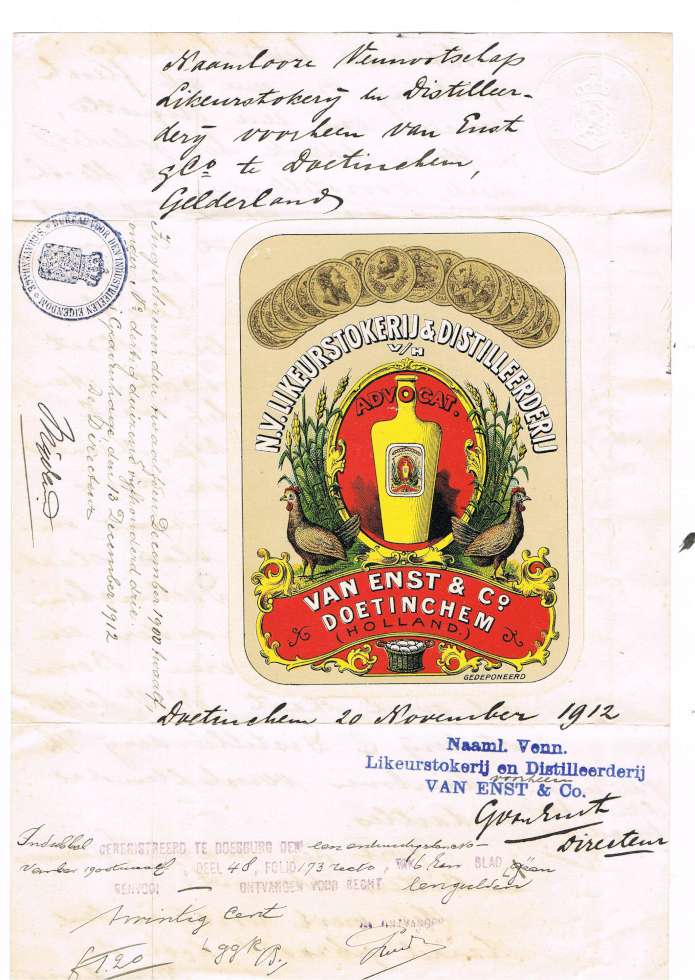 Naamlooze Vennootschap
Likeurstokerij en Distilleer-
derij voorheen van Enst
& Co te Doetinchem,
Gelderland
BUREAU VOOR DEN INDUSTRIEELEN EIGENDOM
'S-GRAVENHAGE
Ingediend den December 1900 twaalf,
onder No dertig duizend vijfhonderd drie.
's Gravenhage, den 13 December 1912
De Directeur
N.V. LIKEURSTOKERIJ & DISTILLEERDERIJ
V/H
ADVOCAT.
VAN ENST & Co
DOETINCHEM
(HOLLAND.)
GEDEPONEERD
Doetinchem 20 November 1912
Naaml. Venn.
Likeurstokerij en Distilleerderij
voorheen
VAN ENST & Co.
G van Enst
Directeur
In dubbel GEREGISTREERD TE DOESBURG DEN een en twintigsten No-
vember 1900 twaalf, DEEL 48, FOLIO 173 recto, VAK 6, een BLAD, geen
RENVOOI — ONTVANGEN VOOR RECHT een gulden
twintig cent
DE ONTVANGER
f 1.20